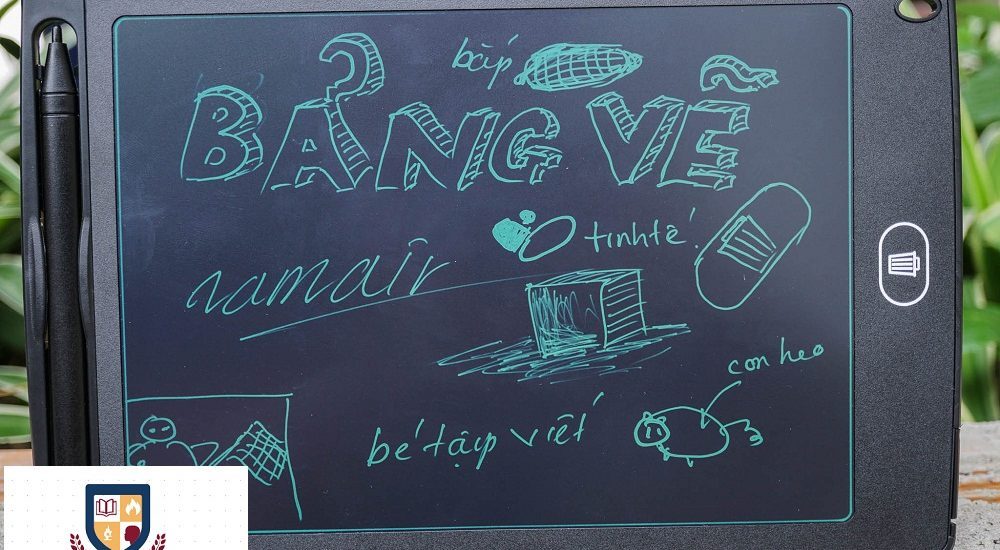 bắp
BẢNG VẼ
tinhtế!
namair
con heo
bé tập viết